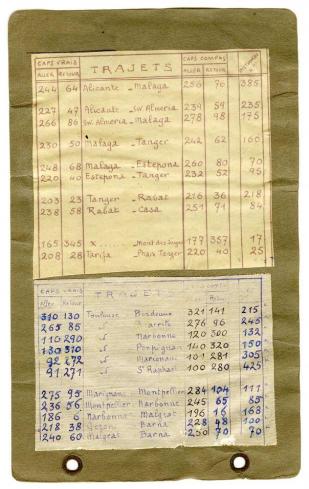 CAPS VRAIS TRAJETS CAPS COMPAS
ALLER RETOUR ALLER RETOUR
244 64 Alicante - Malaga 256 70 385
227 47 Alicante - SW. Almeria 239 59 235
266 86 SW. Almeria - Malaga 278 98 175
230 50 Malaga - Tanger 242 62 160
248 68 Malaga - Estepona 260 80 70
220 40 Estepona - Tanger 232 52 95
203 23 Tanger - Rabat 216 36 218
238 58 Rabat - Casa 251 71 84
165 345 x 177 357 17
208 28 Tarifa - Phare Tanger 220 40 25
CAPS VRAIS TRAJETS
Aller Retour
310 130 Toulouse Bordeaux 321 141 215
265 85 " Biarritz 276 96 245
110 290 " Narbonne 120 300 132
130 310 " Perpignan 140 320 150
92 272 " Marignan 101 281 305
91 271 " St Raphael 100 280 425
275 95 Marignan Montpellier 284 104 111
236 56 Montpellier Narbonne 245 65 85
186 6 Narbonne Malgrat 196 16 168
218 38 Barna 228 48 100
240 60 Malgrat Barna 250 70 70